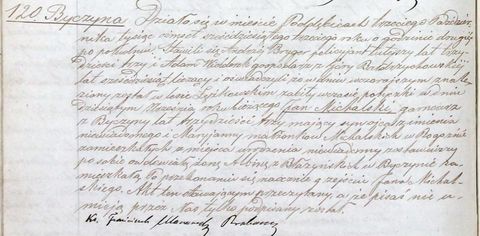 120. Byczyna Działo się w mieście Poddębicach trzeciego Paździer-
nika tysiąc ośmset sześćdziesiątego trzeciego roku o godzinie drugiej
po południu. Stawili się Andrzej Bryger policyjant tutejszy lat trzy-
dzieści trzy i Adam gospodarz z Góry
lat sześćdziesiąt liczący i oświadczyli że w dniu wczorajszym zna-
leziony został w lesie zabity w czasie potyczki w dniu
dziesiątym Września roku bieżącego Jan Michalski garncarz
z Byczyny lat trzydzieści trzy mający syn ojca z imienia
niewiadomego i Maryjanny małżonków Michalskich w
zamieszkałych z miejsca urodzenia niewiadomy zostawiwszy
po sobie owdowiałą żonę Albinę z w Byczynie za-
mieszkałą. Po przekonaniu się naocznie o zejściu Jana Michal-
skiego. Akt ten stawającym przeczytany, a że pisać nie u-
mieją przez Nas tylko podpisany został.
Ks. Franciszek